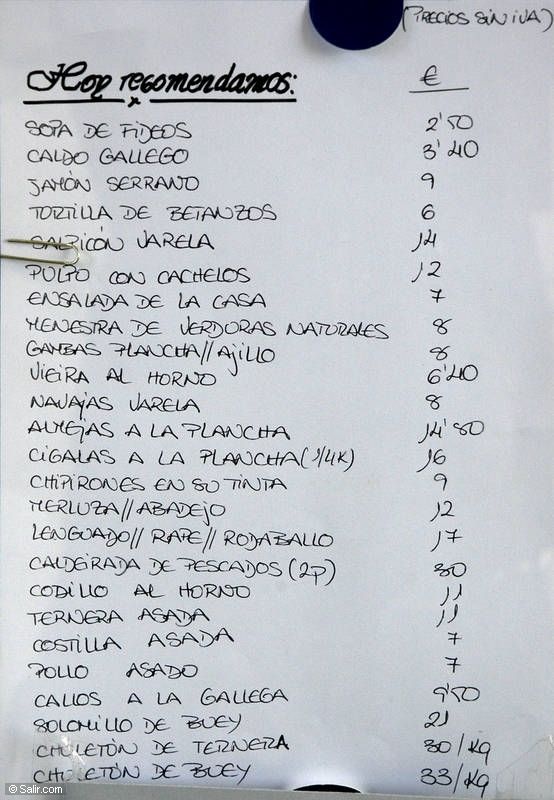 (PRECIOS SIN IVA)
Hoy recomendamos: €
SOPA DE FIDEOS 2'50
CALDO GALLEGO 3'40
JAMÓN SERRANO 9
TORTILLA DE BETANZOS 6
SALPICÓN VARELA 14
PULPO CON CACHELOS 12
ENSALADA DE LA CASA 7
MENESTRA DE VERDURAS NATURALES 8
GAMBAS PLANCHA//AJILLO 8
VIEIRA AL HORNO 6'40
NAVAJAS VARELA 8
ALMEJAS A LA PLANCHA 14'80
CIGALAS A LA PLANCHA (1/4K) 16
CHIPIRONES EN SU TINTA 9
MERLUZA//ABADEJO 12
LENGUADO//RAPE//RODABALLO 17
CALDEIRADA DE PESCADOS (2P) 30
CODILLO AL HORNO 11
TERNERA ASADA 11
COSTILLA ASADA 7
POLLO ASADO 7
CALLOS A LA GALLEGA 5'50
SOLOMILLO DE BUEY 21
CHULETÓN DE TERNERA 30/Kg
CHULETÓN DE BUEY 33/Kg
© Salir.com